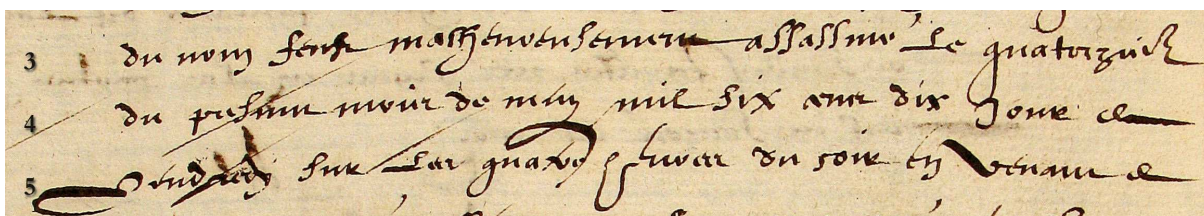 3 du nom feust malheureusement assassine le quatorziesme
4 du present mois de may mil six cens dix Jour de
5 vendredy sur les quatre heures du soir en venant de